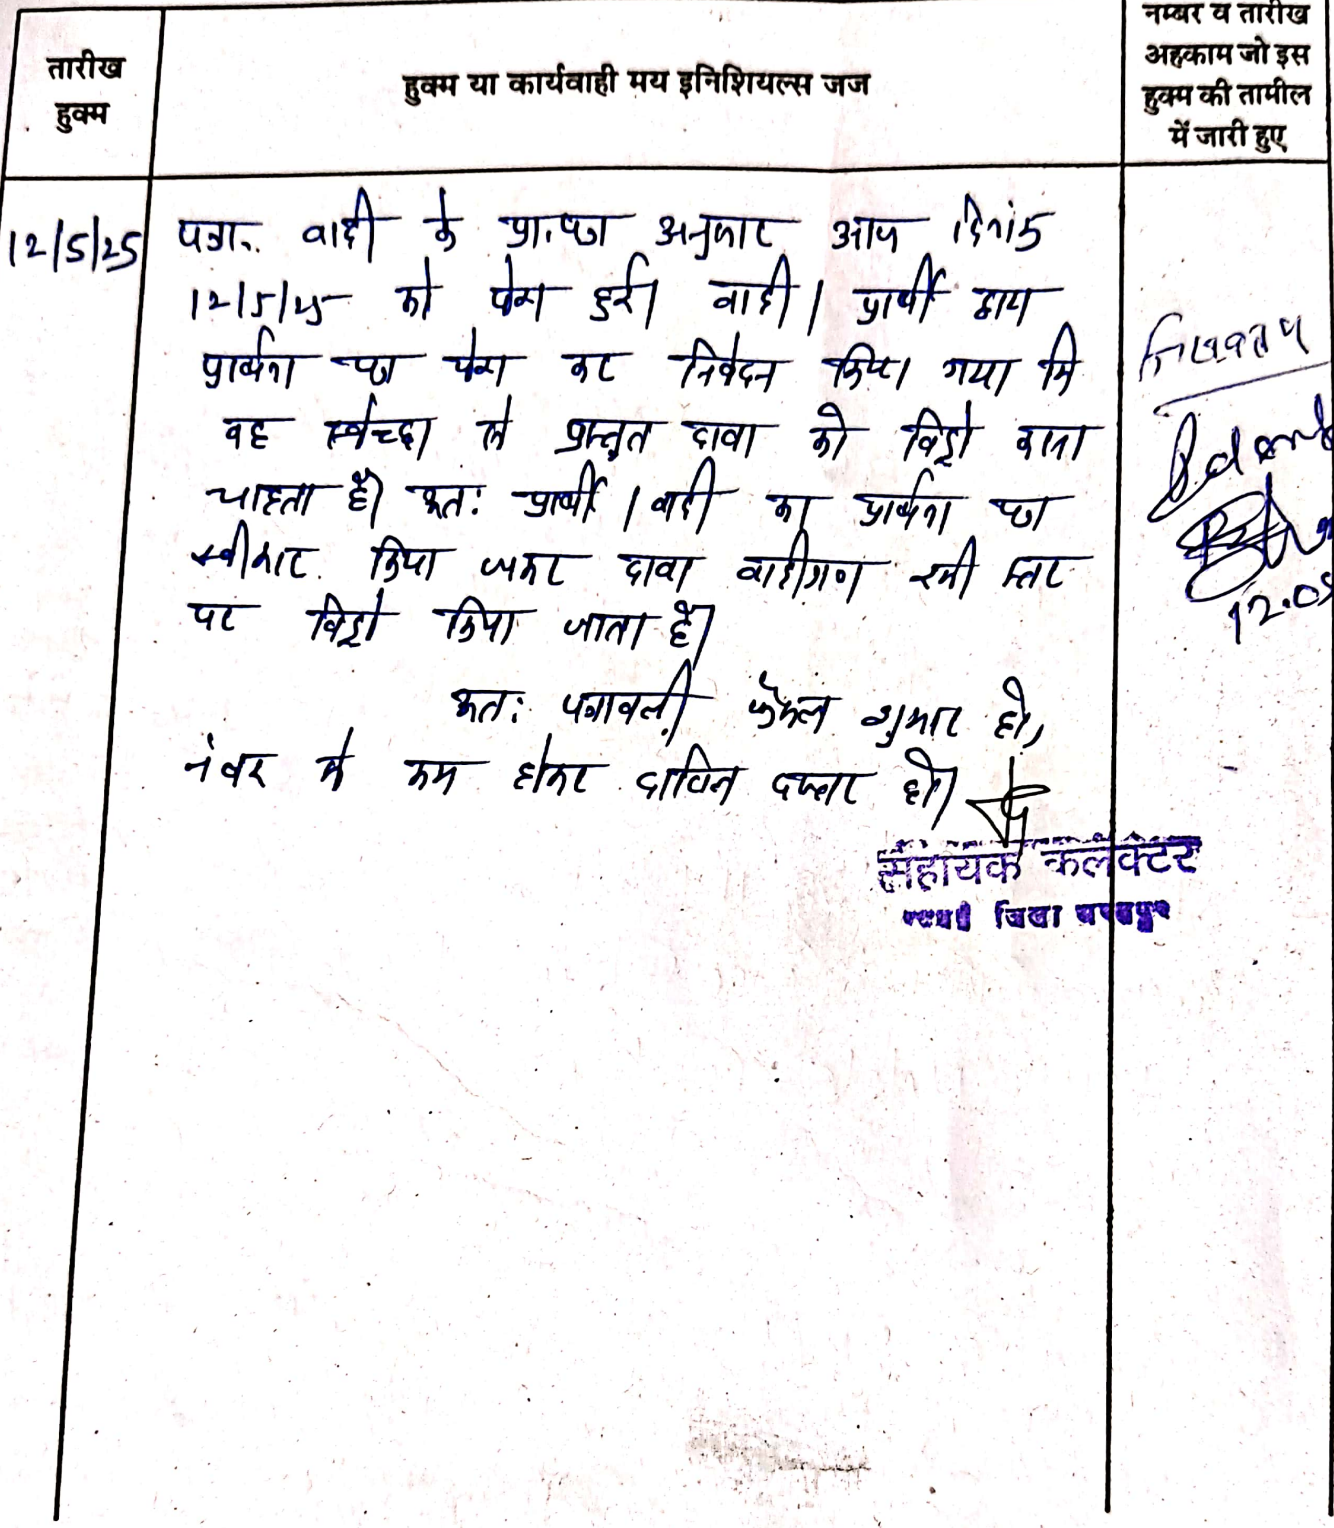 तारीख
हुक्म
हुक्म या कार्यवाही मय इनिशियल्स जज
नम्बर व तारीख
अहकाम जो इस
हुक्म की तामील
में जारी हुए
12/5/25
पत्रा. वादी के प्रा.पत्र अनुसार आज दिनांक
12/5/25 को पेश हुई। वादी / प्रार्थी द्वारा
प्रार्थना पत्र पेश कर निवेदन किया गया कि
वह स्वेच्छा से प्रस्तुत दावा को विड्रो करना
चाहता है। अतः प्रार्थी / वादी का प्रार्थना पत्र
स्वीकार किया जाकर दावा वादीगण इसी स्तर
पर विड्रो किया जाता है।
अतः पत्रावली फैसल शुमार हो,
नंबर से कम होकर दाखिल दफ्तर हो।
सहायक कलेक्टर
जिला
12.05